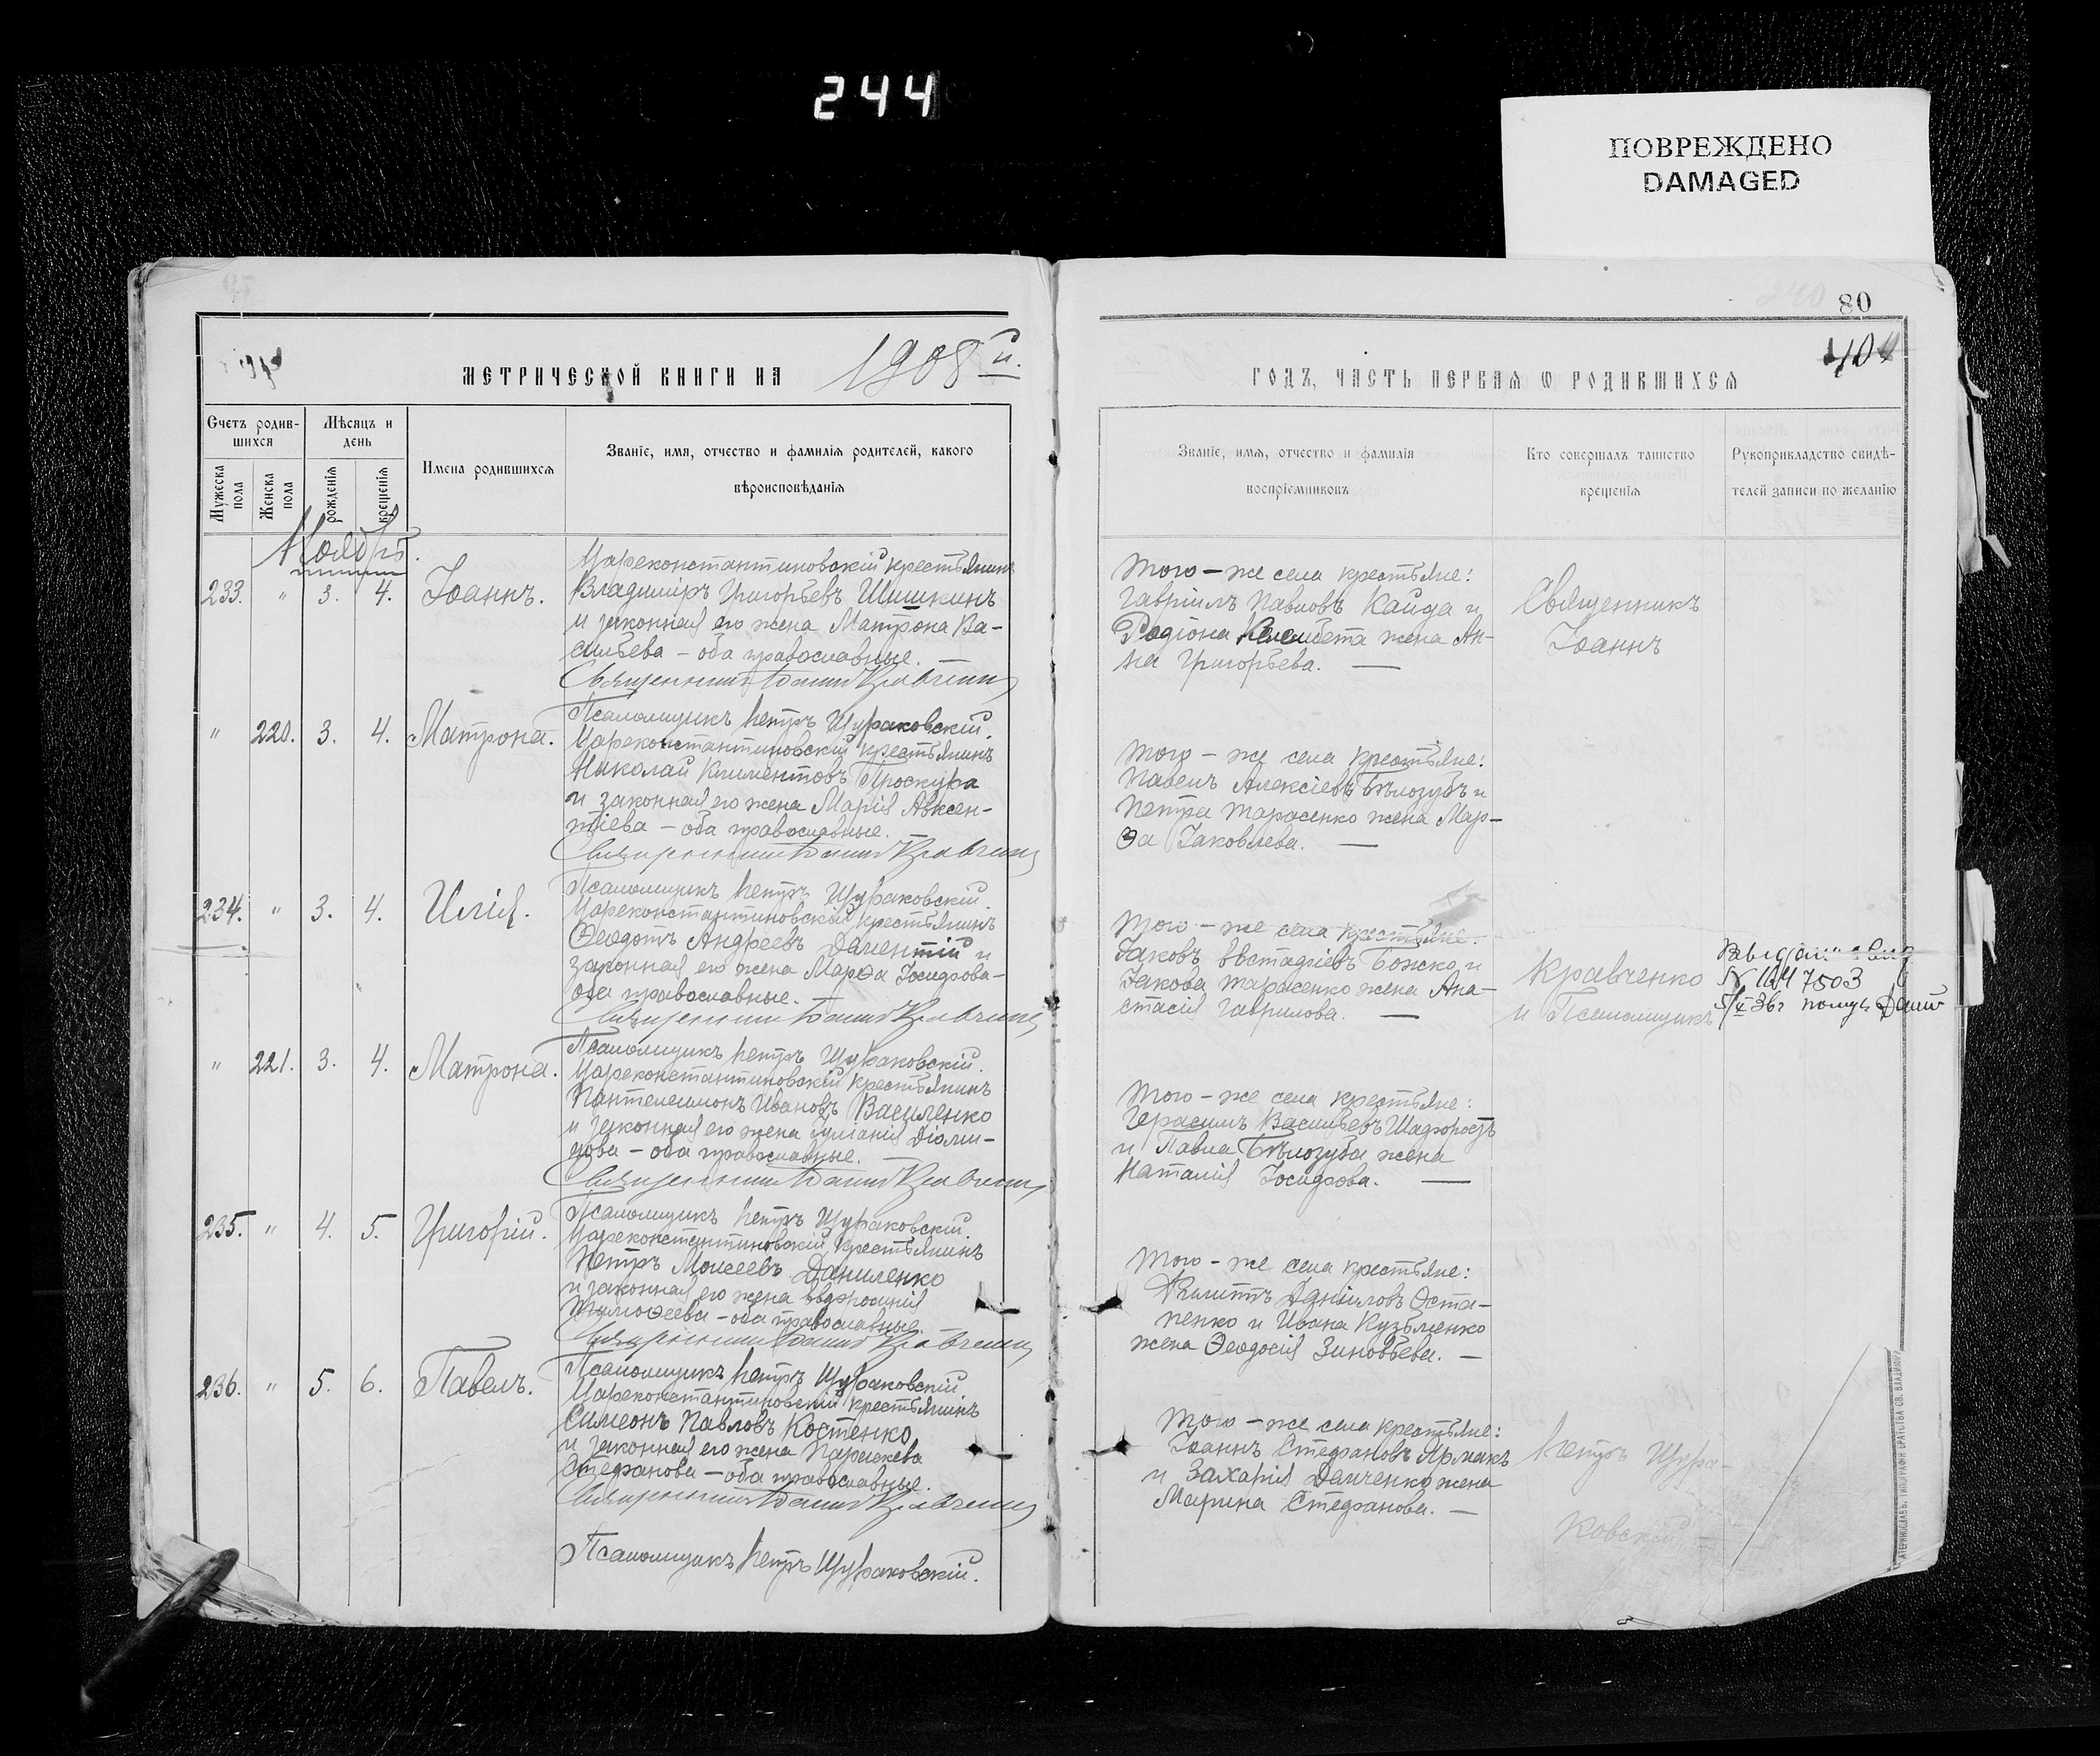 244
ПОВРЕЖДЕНО
DAMAGED
80
404
МЕТРИЧЕСКОЙ КНИГИ НА 1908й.
Счетъ родив-
шихся
Мѣсяцъ и
день
Мужеска
пола
Женска
пола
рожденія
крещенія
Имена родившихся
Званіе, имя, отчество и фамилія родителей, какого
вѣроисповѣданія
Ноябрь.
Цареконстантиновскій крестьянинъ
233. " 3. 4. Іоаннъ. Владиміръ Григорьевъ Шишкинъ
и законная его жена Матрона Ва-
сильева – оба православные. —
Священникъ Іоаннъ Кравченко
Псаломщикъ Петръ Щураковскій.
" 220. 3. 4. Матрона. Цареконстантиновскій крестьянинъ
Николай Климентовъ Проскура
и законная его жена Марія Авксен-
тіева – оба православные. —
Священникъ Іоаннъ Кравченко
Псаломщикъ Петръ Щураковскій.
234. " 3. 4. Илія. Цареконстантиновскій крестьянинъ
Ѳеодотъ Андреевъ Дементій и
законная его жена Марѳа Іосифова –
оба православные. —
Священникъ Іоаннъ Кравченко
Псаломщикъ Петръ Щураковскій.
" 221. 3. 4. Матрона. Цареконстантиновскій крестьянинъ
Пантелеимонъ Ивановъ Василенко
и законная его жена Іуліанія Діоми-
дова – оба православные. —
Священникъ Іоаннъ Кравченко
Псаломщикъ Петръ Щураковскій.
235. " 4. 5. Григорій. Цареконстантиновскій крестьянинъ
Петръ Моисеевъ Даниленко
и законная его жена Евфросинія
Тимоѳеева – оба православные.
Священникъ Іоаннъ Кравченко
Псаломщикъ Петръ Щураковскій.
236. " 5. 6. Павелъ. Цареконстантиновскій крестьянинъ
Симеонъ Павловъ Костенко
и законная его жена Параскева
Стефанова – оба православные.
Священникъ Іоаннъ Кравченко
Псаломщикъ Петръ Щураковскій.
ГОДЪ, ЧАСТЬ ПЕРВАЯ О РОДИВШИХСЯ
Званіе, имя, отчество и фамилія
воспріемниковъ
Кто совершалъ таинство
крещенія
Рукоприкладство свидѣ-
телей записи по желанію
Того – же села крестьяне:
Гавріилъ Павловъ Кайда и
Родіона жена Ан-
на Григорьева. —
Священникъ
Іоаннъ
Того – же села крестьяне:
Павелъ Алексіевъ Бѣлозубъ и
Петра Тарасенко жена Мар-
ѳа Іаковлева. —
Того – же села крестьяне:
Іаковъ Евстафіевъ Божко и
Іакова Тарасенко жена Ана-
стасія Гаврилова. —
Кравченко
и Псаломщикъ
Того – же села крестьяне:
Герасимъ Васильевъ Шафоростъ
и Павла Бѣлозуба жена
Наталія Іосифова. —
Того – же села крестьяне:
Филиппъ Даніиловъ Оста-
пенко и Ивана Кузьменко
жена Ѳеодосія Зиновьева. —
Того – же села крестьяне:
Іоаннъ Стефановъ Ярмакъ
и Захарія Демченко жена
Марина Стефанова. —
Петръ Щура-
ковскій —